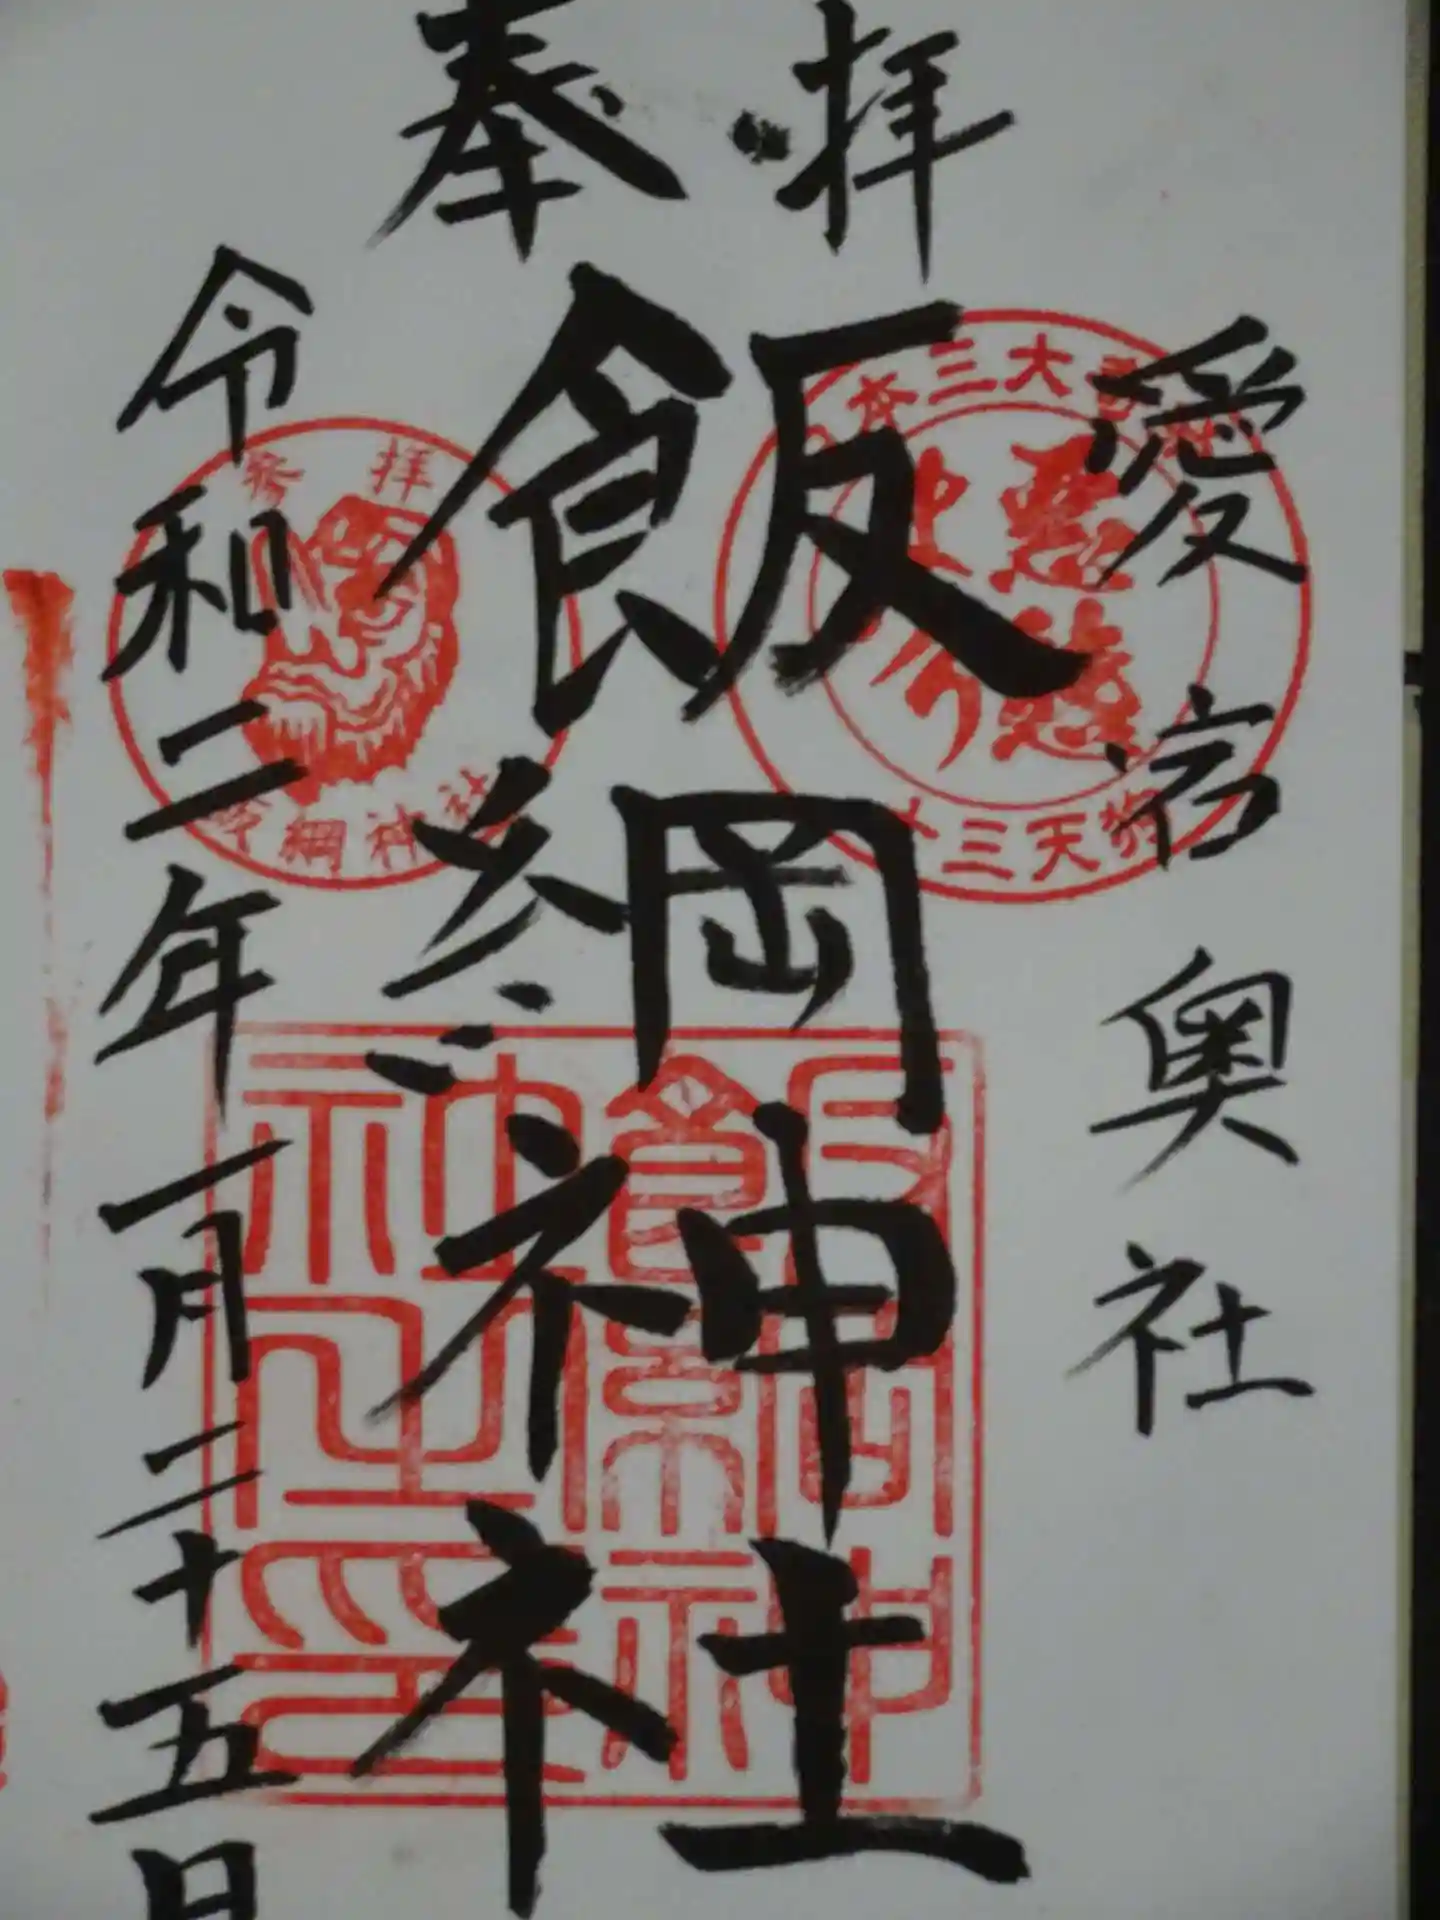 奉拝
愛宕奥社
飯綱神社
令和二年一月二十五日
参拝
飯綱神社
本三大
十三天狗
飯綱神社之印